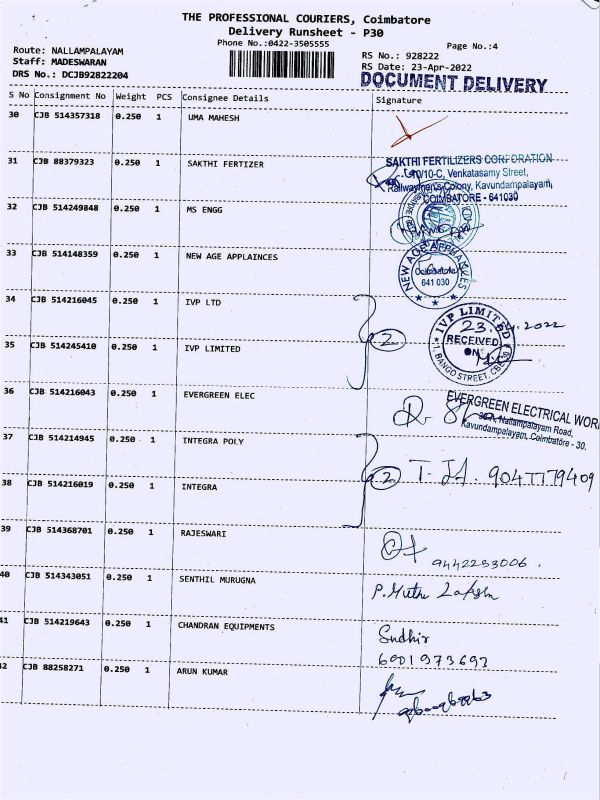 THE PROFESSIONAL COURIERS, Coimbatore
Delivery Runsheet - P30
Phone No.:0422-3505555
Page No.:4
Route: NALLAMPALAYAM
Staff: MADESWARAN
DRS No.: DCJB92822204
RS No.: 928222
RS Date: 23-Apr-2022
DOCUMENT DELIVERY
S No Consignment No Weight PCS Consignee Details Signature
30 CJB 514357318 0.250 1 UMA MAHESH
31 CJB 88379323 0.250 1 SAKTHI FERTIZER
SAKTHI FERTILIZERS CORPORATION
10/10-C, Venkatasamy Street,
Railwaymen's Colony, Kavundampalayam,
COIMBATORE - 641030
32 CJB 514249848 0.250 1 MS ENGG
33 CJB 514148359 0.250 1 NEW AGE APPLAINCES
NEW AGE APPLIANCES
Coimbatore
641 030
34 CJB 514216045 0.250 1 IVP LTD
35 CJB 514245410 0.250 1 IVP LIMITED
2
IVP LIMITED
23.4.2022
RECEIVED
ON
36 CJB 514216043 0.250 1 EVERGREEN ELEC
EVERGREEN ELECTRICAL WOR
Nallampalayam Road,
Kavundampalayam, Coimbatore - 30.
37 CJB 514214945 0.250 1 INTEGRA POLY
2
38 CJB 514216019 0.250 1 INTEGRA
39 CJB 514368701 0.250 1 RAJESWARI
9442253006.
40 CJB 514343051 0.250 1 SENTHIL MURUGNA
41 CJB 514219643 0.250 1 CHANDRAN EQUIPMENTS
Sudhir
42 CJB 88258271 0.250 1 ARUN KUMAR